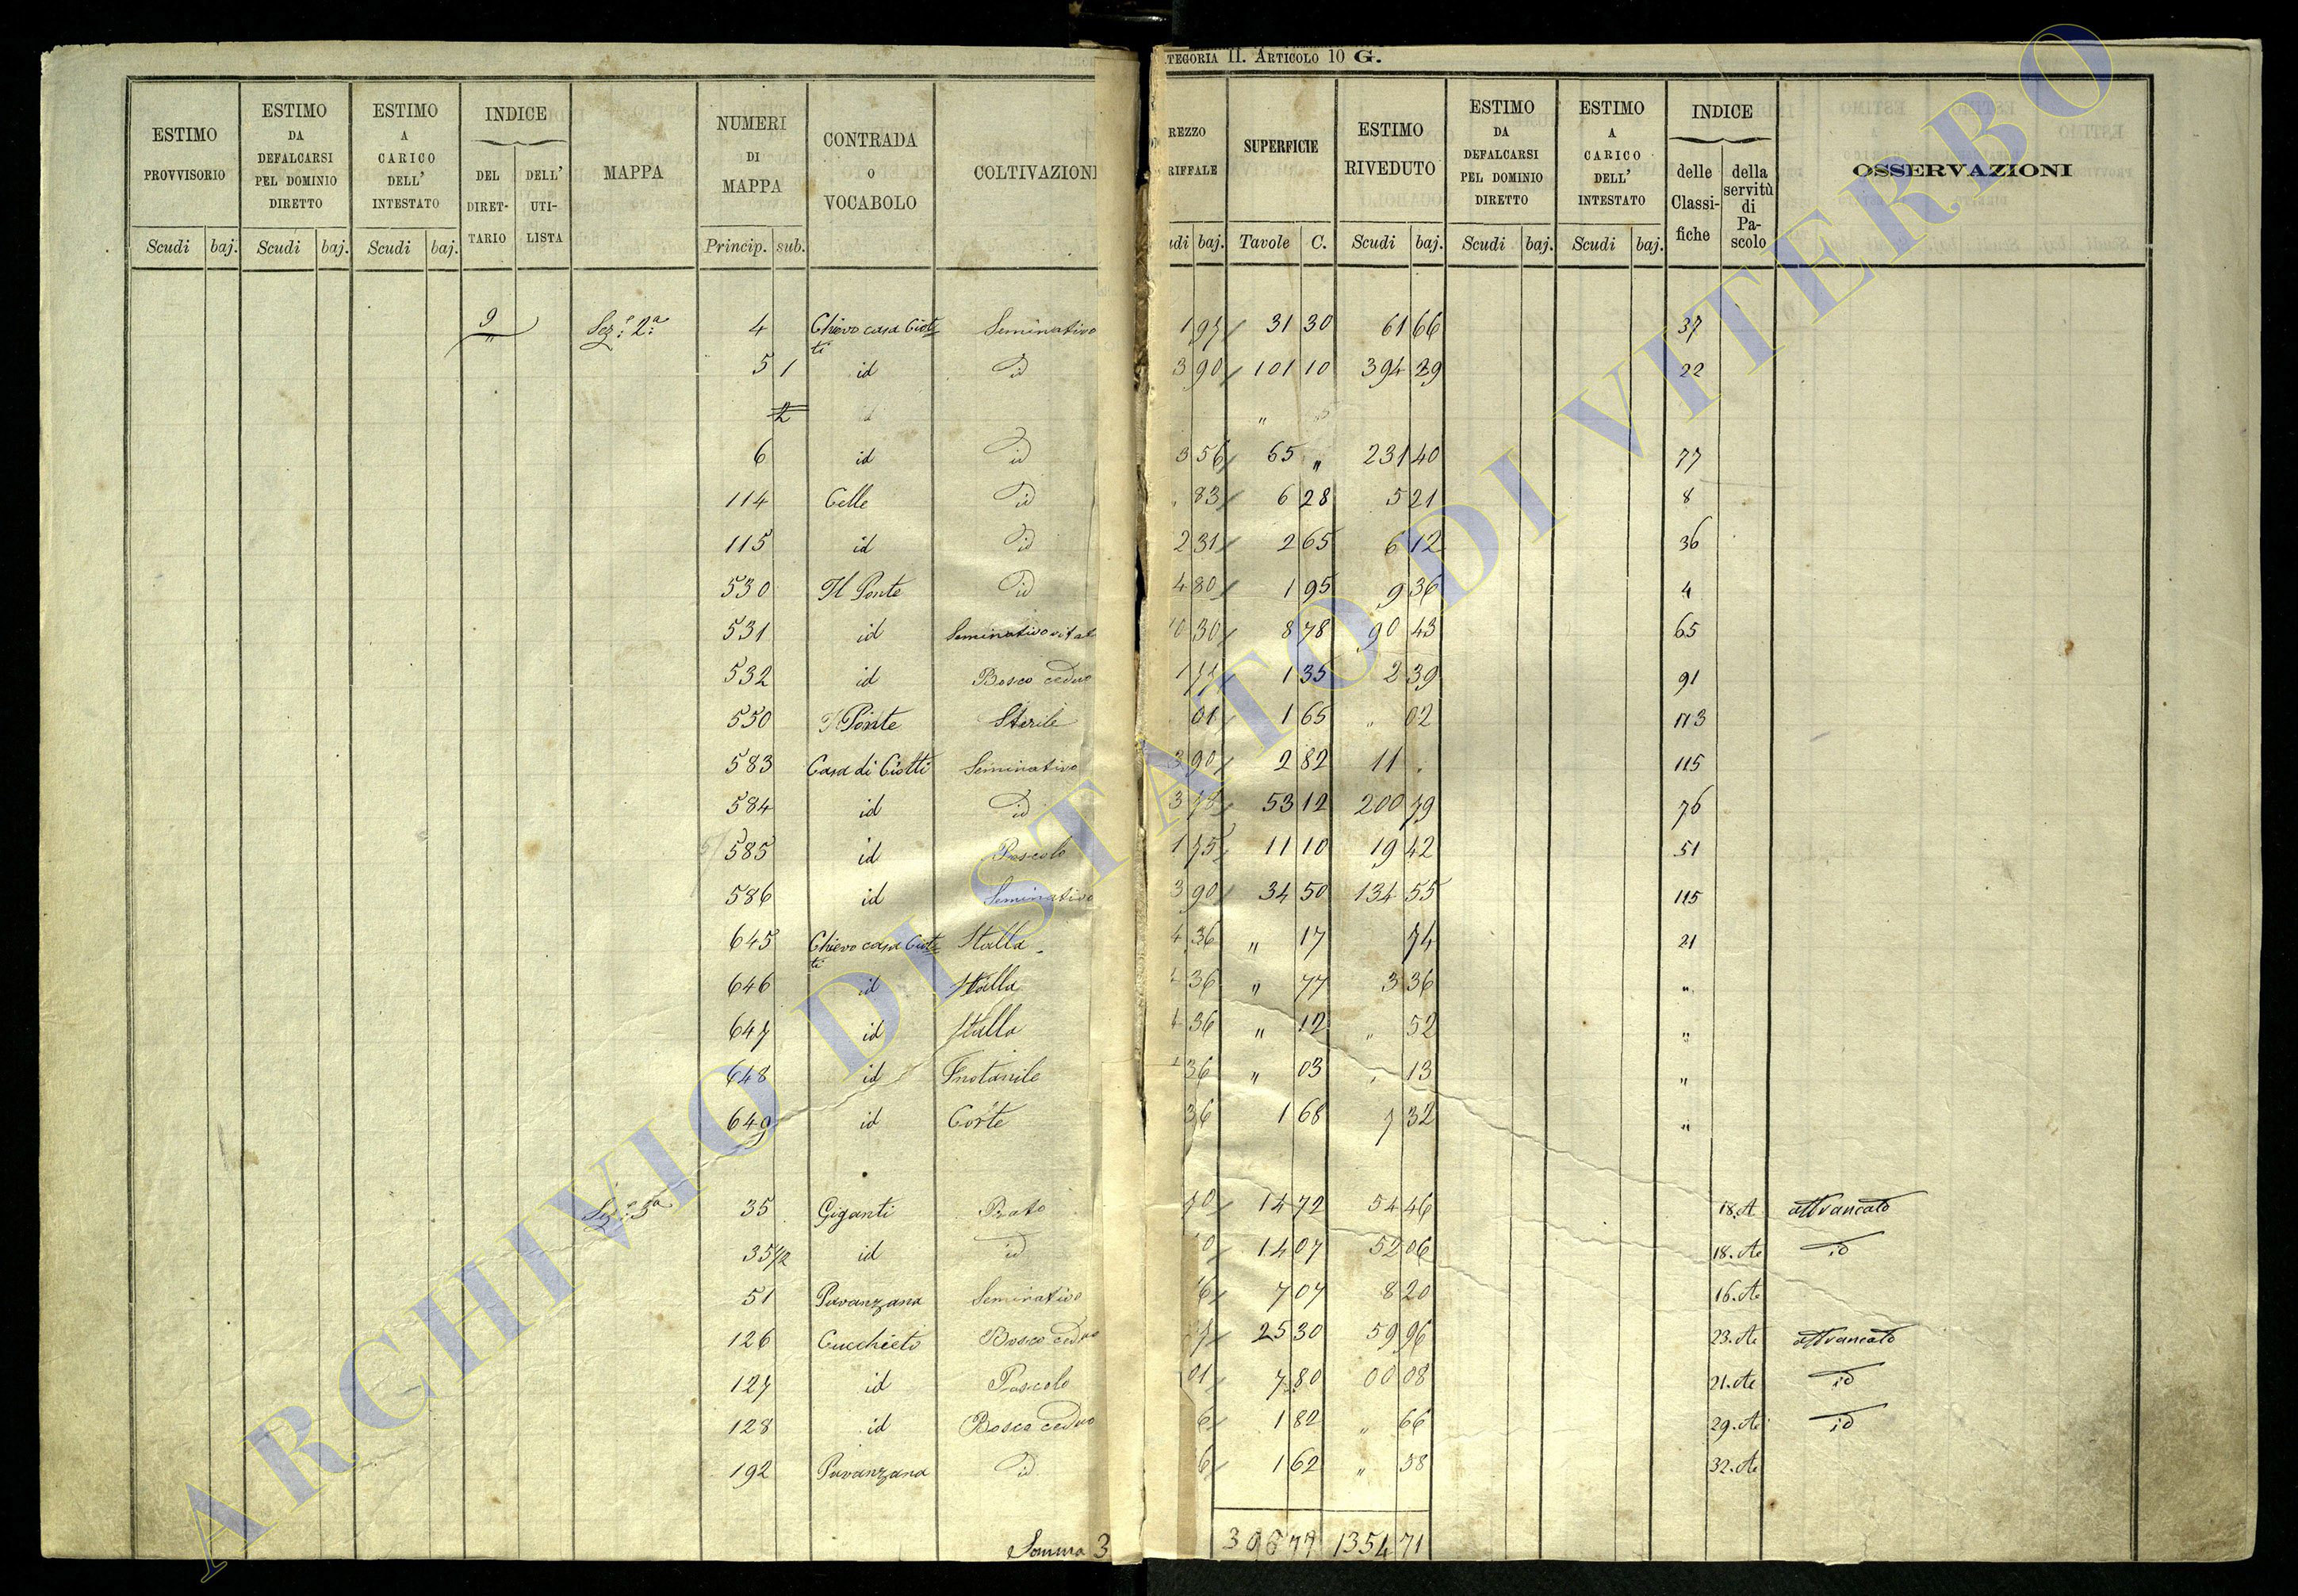 ATEGORIA II. ARTICOLO 10 G.
ESTIMO PROVVISORIO
ESTIMO DA DEFALCARSI PEL DOMINIO DIRETTO
ESTIMO A CARICO DELL' INTESTATO
INDICE
DEL DIRET-TARIO
DELL' UTI-LISTA
MAPPA
NUMERI DI MAPPA
CONTRADA O VOCABOLO
COLTIVAZION
REZZO RIFFALE
SUPERFICIE
ESTIMO RIVEDUTO
ESTIMO DA DEFALCARSI PEL DOMINIO DIRETTO
ESTIMO A CARICO DELL' INTESTATO
INDICE
delle Classi-fiche
della servitù di Pa-scolo
OSSERVAZIONI
Scudi baj. Scudi baj. Scudi baj. Princip. sub. udi baj. Tavole C. Scudi baj. Scudi baj. Scudi baj.
9 Sez.e 2a 4 Chievo casa Ciotti Seminativo 1 97 31 30 61 66 37
5 1 id id 3 90 101 10 394 29 22
2 "
6 id id 3 56 65 " 231 40 77
114 Celle id 83 6 28 5 21 8
115 id id 2 31 2 65 6 12 36
530 Il Ponte id 4 80 1 95 9 36 4
531 id Seminativo vitat 30 8 78 90 43 65
532 id Bosco ceduo 1 77 1 35 2 39 91
550 Il Ponte Sterile 01 1 65 " 02 113
583 Casa di Ciotti Seminativo 3 90 2 82 11 . 115
584 id id 3 78 53 12 200 79 76
585 id Pascolo 1 75 11 10 19 42 51
586 id Seminativo 3 90 34 50 134 55 115
645 Chievo casa Ciotti Stalla 4 36 " 17 74 21
646 id Stalla 36 " 77 3 36 "
647 id Stalla 36 " 12 " 52 "
648 id 36 " 03 " 13 "
649 id Corte 36 1 68 7 32 "
Sez.e 3a 35 Giganti Prato 70 14 72 54 46 18.A attrancato
35 1/2 id id 0 14 07 52 06 18.A id
51 Pavanzana Seminativo 6 7 07 8 20 16.A
126 Cucchieto Bosco ceduo 7 25 30 59 96 23.A attrancato
127 id Pascolo 01 7 80 00 08 21.A id
128 id Bosco ceduo 6 1 82 " 66 29.A id
192 Pavanzana id 6 1 62 " 58 32.A
Somma 3 1354 71
ARCHIVIO DI STATO DI VITERBO